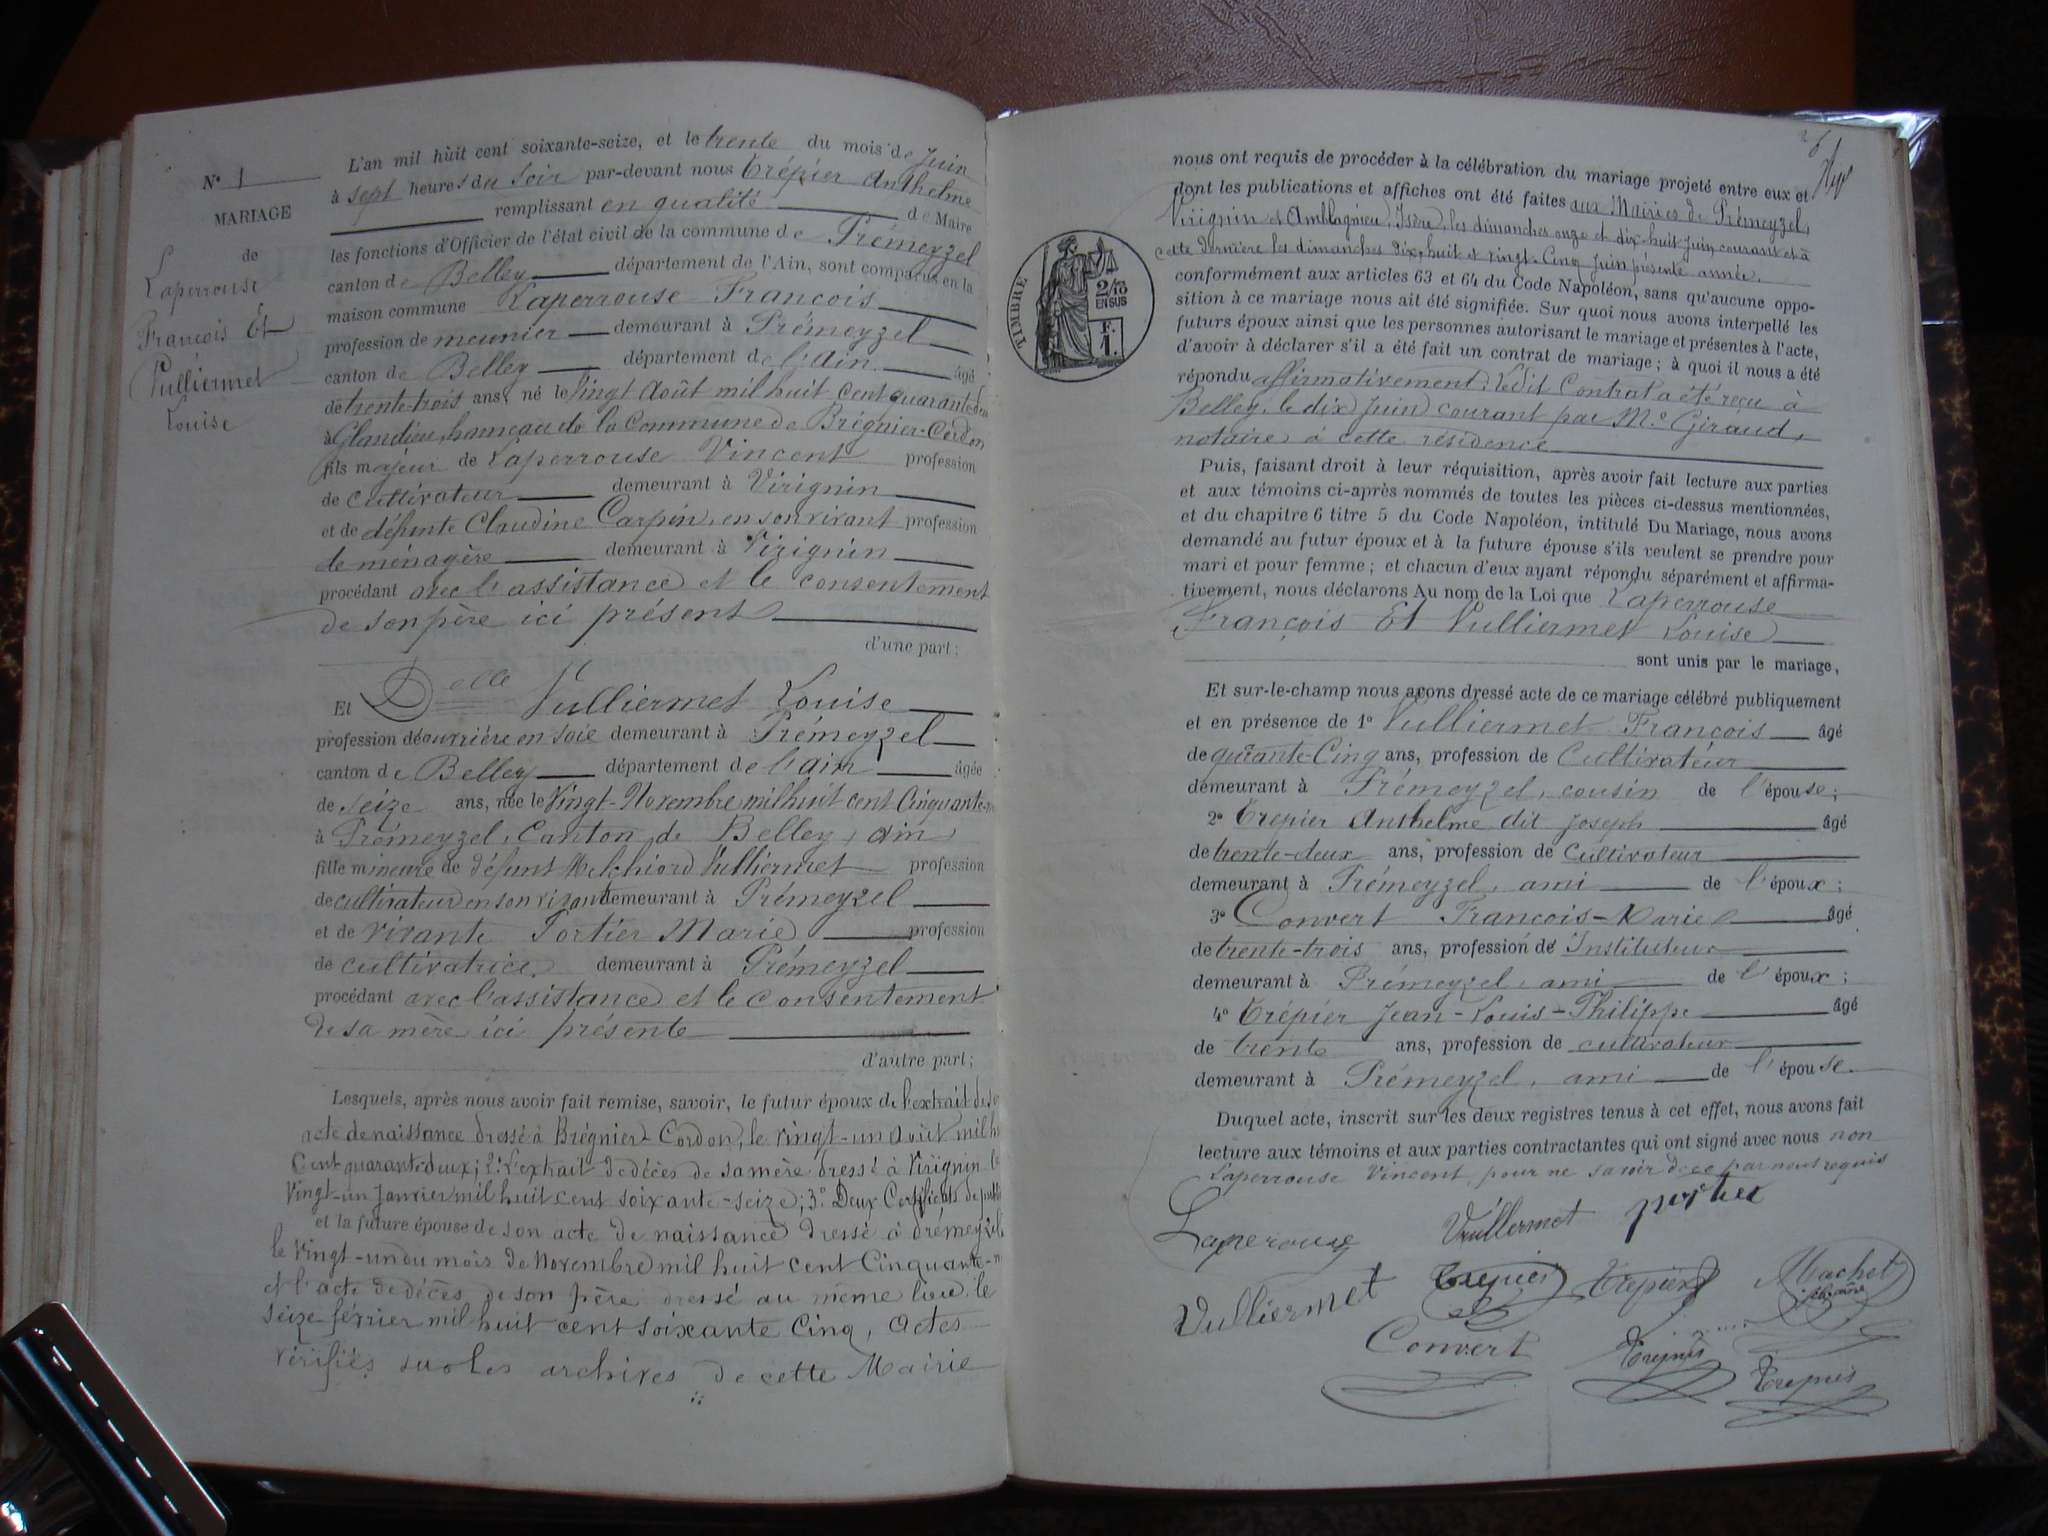 N° 1
MARIAGE
de
Laperrouse
François Et
Vulliermet
Louise
L'an mil huit cent soixante-seize, et le trente du mois de Juin
à sept heures du soir par-devant nous Trépier Anthelme
remplissant en qualité de Maire
les fonctions d'Officier de l'état civil de la commune de Prémeyzel
canton de Belley département de l'Ain, sont comparus en la
maison commune Laperrouse François
profession de meunier demeurant à Prémeyzel
canton de Belley département de l'ain âgé
de trente-trois ans, né le vingt Août mil huit cent quarante-deux
à Glandieu, hameau de la Commune de Brégnier-Cordon,
fils majeur de Laperrouse Vincent profession
de cultivateur demeurant à Virignin
et de défunte Claudine Carpin, en son vivant profession
de ménagère demeurant à Virignin
procédant avec l'assistance et le consentement
de son père ici présent
d'une part;
Et Delle Vulliermet Louise
profession de ouvrière en soie demeurant à Prémeyzel
canton de Belley département de l'ain âgée
de seize ans, née le vingt-Novembre mil huit cent Cinquante-
à Prémeyzel, Canton de Belley, ain
fille mineure de défunt Melchiord Vulliermet profession
de cultivateur en son vivant demeurant à Prémeyzel
et de vivante Portier Marie profession
de cultivatrice, demeurant à Prémeyzel
procédant avec l'assistance et le consentement
de sa mère ici présente
d'autre part;
Lesquels, après nous avoir fait remise, savoir, le futur époux de l'extrait de son
acte de naissance dressé à Brégnier-Cordon, le vingt-un Août mil h
Cent quarante deux; 2° l'extrait de décès de sa mère dressé à Virignin le
Vingt-un Janvier mil huit cent soixante-seize; 3° Deux Certificats de publ
et la future épouse de son acte de naissance dressé à Prémeyzel
le vingt-un du mois de Novembre mil huit cent Cinquante-n
et l'acte de décès de son père dressé au même lieu le
seize février mil huit cent soixante Cinq, actes
vérifiés sur les archives de cette Mairie
nous ont requis de procéder à la célébration du mariage projeté entre eux et
dont les publications et affiches ont été faites aux Mairies de Prémeyzel,
Virignin et Amblagnieu, Isère, les dimanches onze et dix-huit juin courant et à
cette dernière les dimanches dix-huit et vingt-Cinq Juin présente année,
conformément aux articles 63 et 64 du Code Napoléon, sans qu'aucune oppo-
sition à ce mariage nous ait été signifiée. Sur quoi nous avons interpellé les
futurs époux ainsi que les personnes autorisant le mariage et présentes à l'acte,
d'avoir à déclarer s'il a été fait un contrat de mariage; à quoi il nous a été
répondu affirmativement. Ledit Contrat a été reçu à
Belley, le dix Juin courant par Me Giraud,
notaire à cette résidence
TIMBRE
2/10
EN SUS
F.
1.
Puis, faisant droit à leur réquisition, après avoir fait lecture aux parties
et aux témoins ci-après nommés de toutes les pièces ci-dessus mentionnées,
et du chapitre 6 titre 5 du Code Napoléon, intitulé Du Mariage, nous avons
demandé au futur époux et à la future épouse s'ils veulent se prendre pour
mari et pour femme; et chacun d'eux ayant répondu séparément et affirma-
tivement, nous déclarons Au nom de la Loi que Laperrouse
François Et Vulliermet Louise
sont unis par le mariage,
Et sur-le-champ nous avons dressé acte de ce mariage célébré publiquement
et en présence de 1° Vulliermet François âgé
de qurante-Cinq ans, profession de Cultivateur
demeurant à Prémeyzel, cousin de l'épouse;
2° Trepier Anthelme dit Joseph âgé
de trente-deux ans, profession de Cultivateur
demeurant à Prémeyzel, ami de l'époux;
3° Convert François-Marie âgé
de trente-trois ans, profession de Instituteur
demeurant à Prémeyzel, ami de l'époux;
4° Trépier Jean-Louis-Philippe âgé
de trente ans, profession de cultivateur
demeurant à Prémeyzel, ami de l'épouse.
Duquel acte, inscrit sur les deux registres tenus à cet effet, nous avons fait
lecture aux témoins et aux parties contractantes qui ont signé avec nous non
Laperrouse Vincent, pour ne savoir de ce par nous requis
Laperouse Vuillermet portier
Vulliermet Trepier Trepier Machet
Convert Trepier Trepier